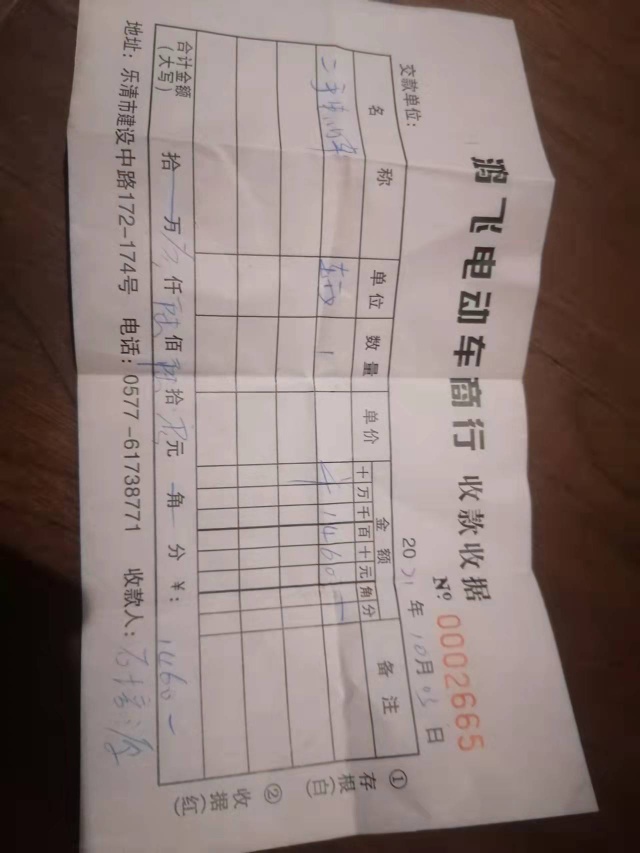 鸿飞电动车商行 收款收据
№ 0002665
交款单位: 2021年10月03日
名称 单位 数量 单价 金额 备注
十万千百十元角分
辆 1 ¥1460—
合计金额(大写) 拾 万 仟 佰 拾 元 角 分 ¥: 1460—
地址: 乐清市建设中路172-174号 电话: 0577-61738771 收款人:
① 存根(白)
② 收据(红)